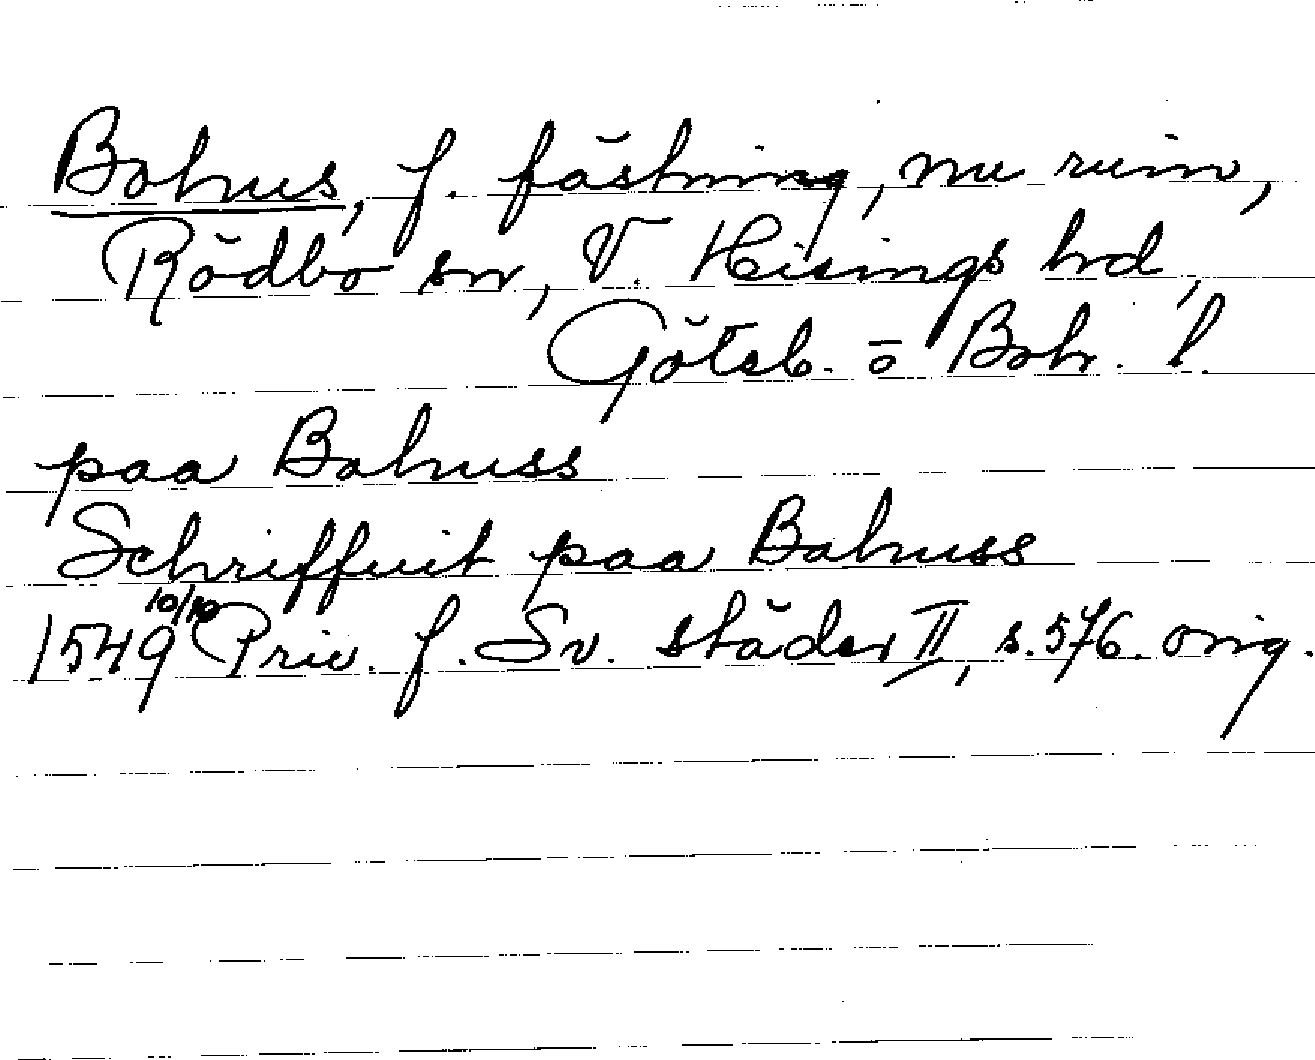 Bohus, f. fästning, nu ruin,
Rödbo sn, V. Hisings hrd,
Götab. o Boh. l.
paa Bahuss
Schriffuit paa Bahuss
1549 10/10 Priv. f. Sv. städer II, s. 576. orig.